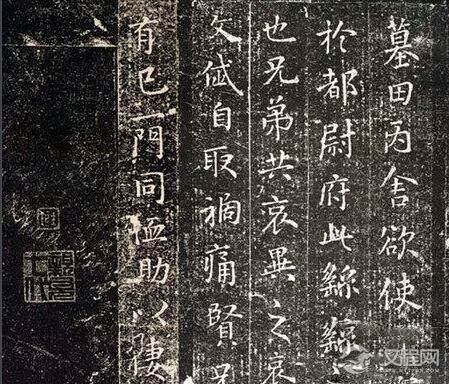 墓田丙舍欲使
於都尉府此繇
也兄弟共哀異之哀
文岱自取禍痛賢兄
有已一門同恤助以悽